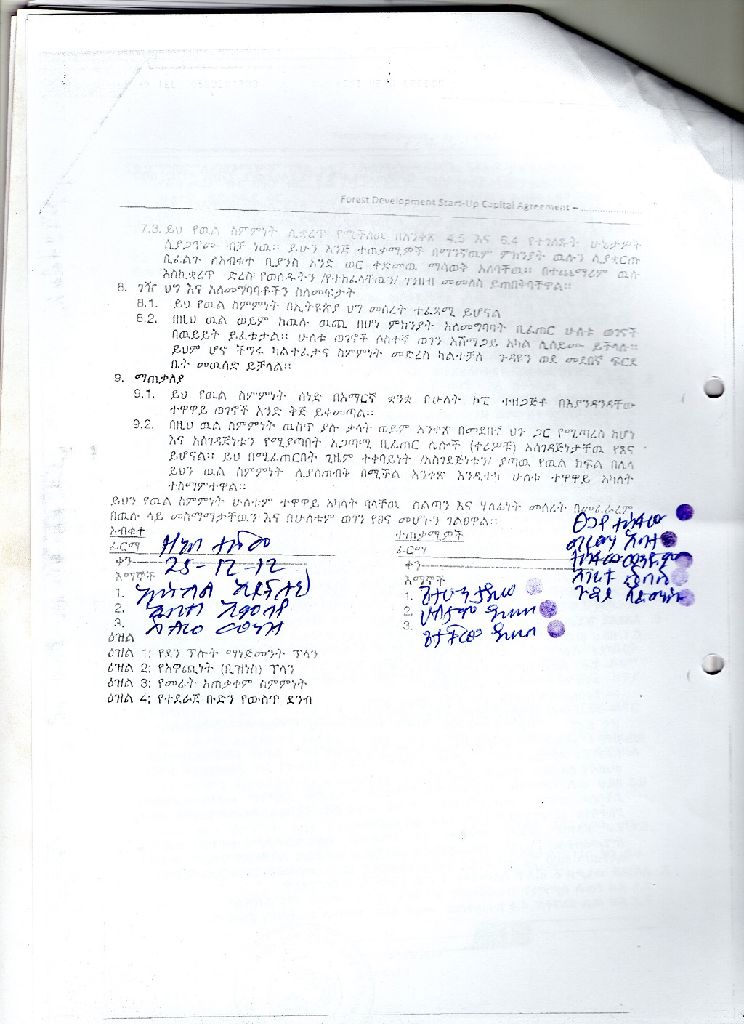 Forest Development Start-Up Capital Agreement –
7.3. ይህ የዉል ስምምነት ሊቋረጥ የሚችለዉ በአንቀጽ 4.5 እና 6.4 የተገለጹት ሁኔታዎች
ሲያጋጥሙ ብቻ ነዉ። ይሁን እንጅ ተጠቃሚዎች በማንኛዉም ምክንያት ዉሉን ሊያቋርጡ
ቢፈልጉ የአብቁተ ቢያንስ አንድ ወር ቀድመዉ ማሳወቅ አለባቸዉ። በተጨማሪም ዉሉ
እስኪቋረጥ ድረስ የወሰዱትን /የተከፈላቸዉን/ ገንዘብ መመለስ ይጠበቅባቸዋል።
8. ገዥ ህግ እና አለመግባባቶችን ስለመፍታት
8.1. ይህ የዉል ስምምነት በኢትዮጵያ ህግ መሰረት ተፈጻሚ ይሆናል
8.2. በዚህ ዉል ወይም ከዉሉ ዉጪ በሆነ ምክንያት አለመግባባት ቢፈጠር ሁለቱ ወገኖች
በዉይይት ይፈቱታል። ሁለቱ ወገኖች ሶስተኛ ወገን አሸማጋይ አካል ሊሰይሙ ይችላሉ።
ይህም ሆኖ ችግሩ ካልተፈታና ስምምነት መድረስ ካልተቻለ ጉዳዩን ወደ መደበኛ ፍርድ
ቤት መዉሰድ ይቻላል።
9. ማጠቃለያ
9.1. ይህ የዉል ስምምነት ሰነድ በአማርኛ ቋንቋ የሁለት ኮፒ ተዘጋጅቶ በእያንዳንዳቸው
ተዋዋይ ወገኖች አንድ ቅጅ ይቀመጣል።
9.2. በዚህ ዉል ስምምነት ዉስጥ ያሉ ቃላት ወይም አንቀጽ በመደበኛ ህግ ጋር የሚጣረስ ከሆነ
እና አስገዳጅነቱን የሚያጣበት አጋጣሚ ቢፈጠር ሌሎች (ቀሪዎቹ) አስገዳጅነታቸዉ የጸና
ይሆናል። ይህ በሚፈጠርበት ጊዜም ተቀባይነት /አስገዳጅነቱን/ ያጣዉ የዉል ክፍል በሌላ
ይህን ዉል ስምምነት ሊያስጠብቅ በሚችል አንቀጽ እንዲተካ ሁለቱ ተዋዋይ አካላት
ተስማምተዋል።
ይህን የዉል ስምምነት ሁለቱም ተዋዋይ አካላት ባላቸዉ ስልጣን እና ሃላፊነት መሰረት በመፈራረም
በዉሉ ላይ መስማማታቸዉን እና በሁለቱም ወገን የፀና መሆኑን ገልፀዋል።
አብቁተ
ተጠቃሚዎች
ፊርማ
ፊርማ
ቀን 25-12-12
ቀን
እማኞች
እማኞች
1.
1.
2.
2.
3.
3.
ዕዝል
ዕዝል 1; የደን ፕሎት ማነጅመንት ፕላን
ዕዝል 2; የአዋጪነት (ቢዝነስ) ፕላን
ዕዝል 3; የመሬት አጠቃቀም ስምምነት
ዕዝል 4; የተደራጀ ቡድን የውስጥ ደንብ